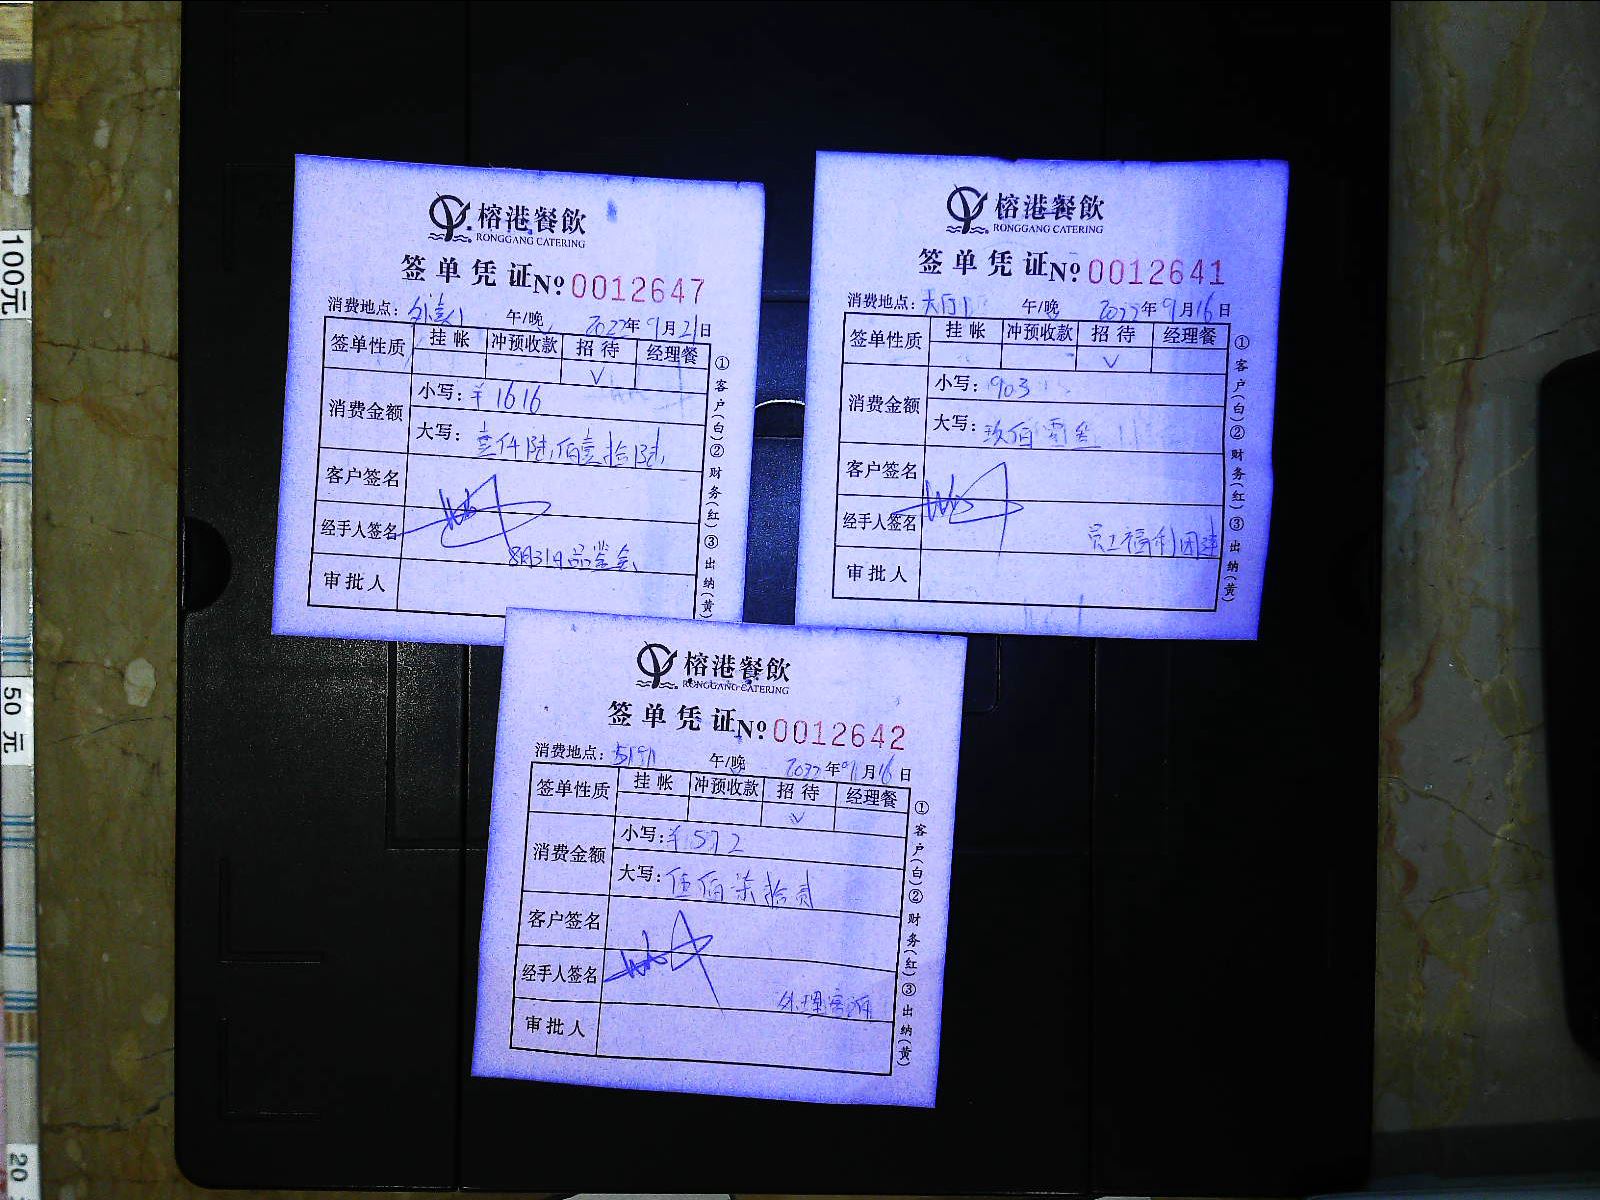 榕港餐飲
RONGGANG CATERING
签单凭证 №0012647
消费地点： 午/晚 2022年9月21日
签单性质 挂帐 冲预收款 招待 经理餐
√
消费金额 小写：¥1616
大写：壹仟陆佰壹拾陆
客户签名
经手人签名
8月31日品鉴会
审批人
①客户(白)②财务(红)③出纳(黄)
榕港餐飲
RONGGANG CATERING
签单凭证 №0012641
消费地点：大厅 午/晚 2022年9月16日
签单性质 挂帐 冲预收款 招待 经理餐
√
消费金额 小写：903
大写：玖佰零叁
客户签名
经手人签名
员工福利团建
审批人
①客户(白)②财务(红)③出纳(黄)
榕港餐飲
RONGGANG CATERING
签单凭证 №0012642
消费地点： 午/晚 2022年9月16日
签单性质 挂帐 冲预收款 招待 经理餐
√
消费金额 小写：¥572
大写：伍佰柒拾贰
客户签名
经手人签名
审批人
①客户(白)②财务(红)③出纳(黄)
100元
50元
20